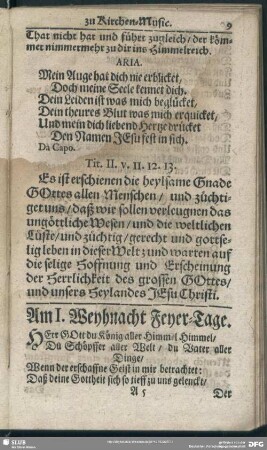 zu Kirchen-Music. 9
That nicht hat und süher zugleich/ der köm-
mer nimmermehr zu dir ins Himmelreich.
ARIA.
Mein Auge hat dich nie erblicket,
Doch meine Seele kennet dich.
Dein Leiden ist was mich beglücket,
Dein theures Blut was mich erquicket,
Und mein dich liebend Hertze drücket
Den Namen JEsu fest in sich.
Da Capo.
Tit. II. v. 11. 12. 13.
Es ist erschienen die heylsame Gnade
GOttes allen Menschen/ und züchti-
get uns/ daß wir sollen verleugnen das
ungöttliche Wesen/ und die weltlichen
Lüste/ und züchtig/ gerecht und gottse-
lig leben in dieser Welt/ und warten auf
die selige Hoffnung und Erscheinung
der Herrlichkeit des grossen GOttes/
und unsers Heylandes JEsu Christi.
Am I. Weyhnacht Feyer-Tage.
HErr GOtt du König aller Himmel Himmel/
Du Schöpffer aller Welt/ du Vater aller
Dinge/
Wenn der erschaffne Geist in mir betrachtet:
Daß deine Gottheit sich so tieff zu uns gelenckt/
A 5 Der
SLUB
DFG